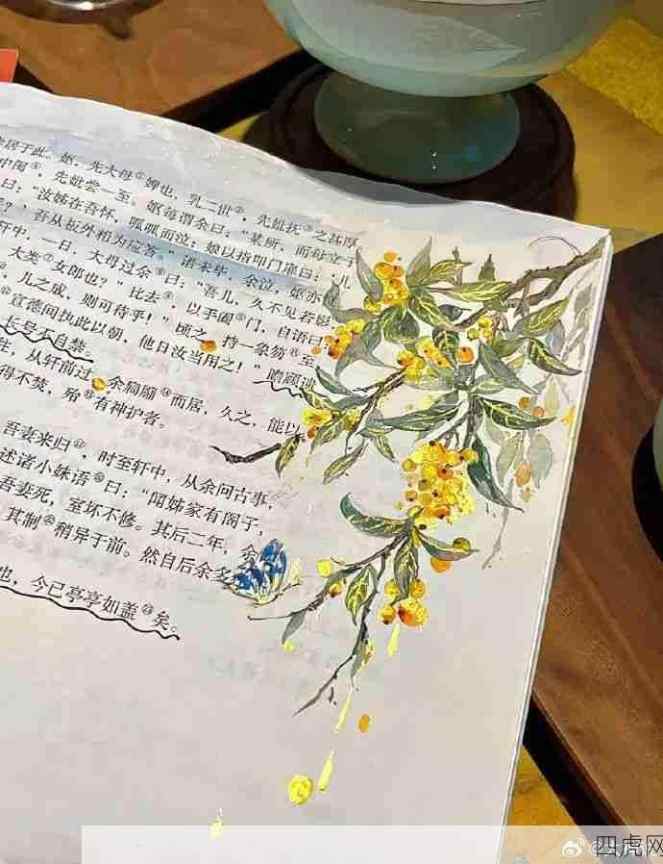 居于此。妪,先大母婢也,乳二世,先妣抚之甚厚
中闺。先妣尝一至。妪每谓余曰:“某所,而母立于
曰:“汝姊在吾怀,呱呱而泣;娘以指叩门扉曰:‘儿
?’吾从板外相为应答。”语未毕,余泣,妪亦泣
轩中,一日,大母过余曰:“吾儿,久不见若影
大类女郎也?”比去,以手阖门,自语曰
,儿之成,则可待乎!”顷之,持一象笏至
宣德间执此以朝,他日汝当用之!”瞻顾遗
长号不自禁
,从轩前过。余扃牖而居,久之,能以
得不焚,殆有神护者。
吾妻来归,时至轩中,从余问古事,
述诸小妹语曰:“闻姊家有阁子,
吾妻死,室坏不修。其后二年,余
其制稍异于前。然自后余多
也,今已亭亭如盖矣。
四虎网